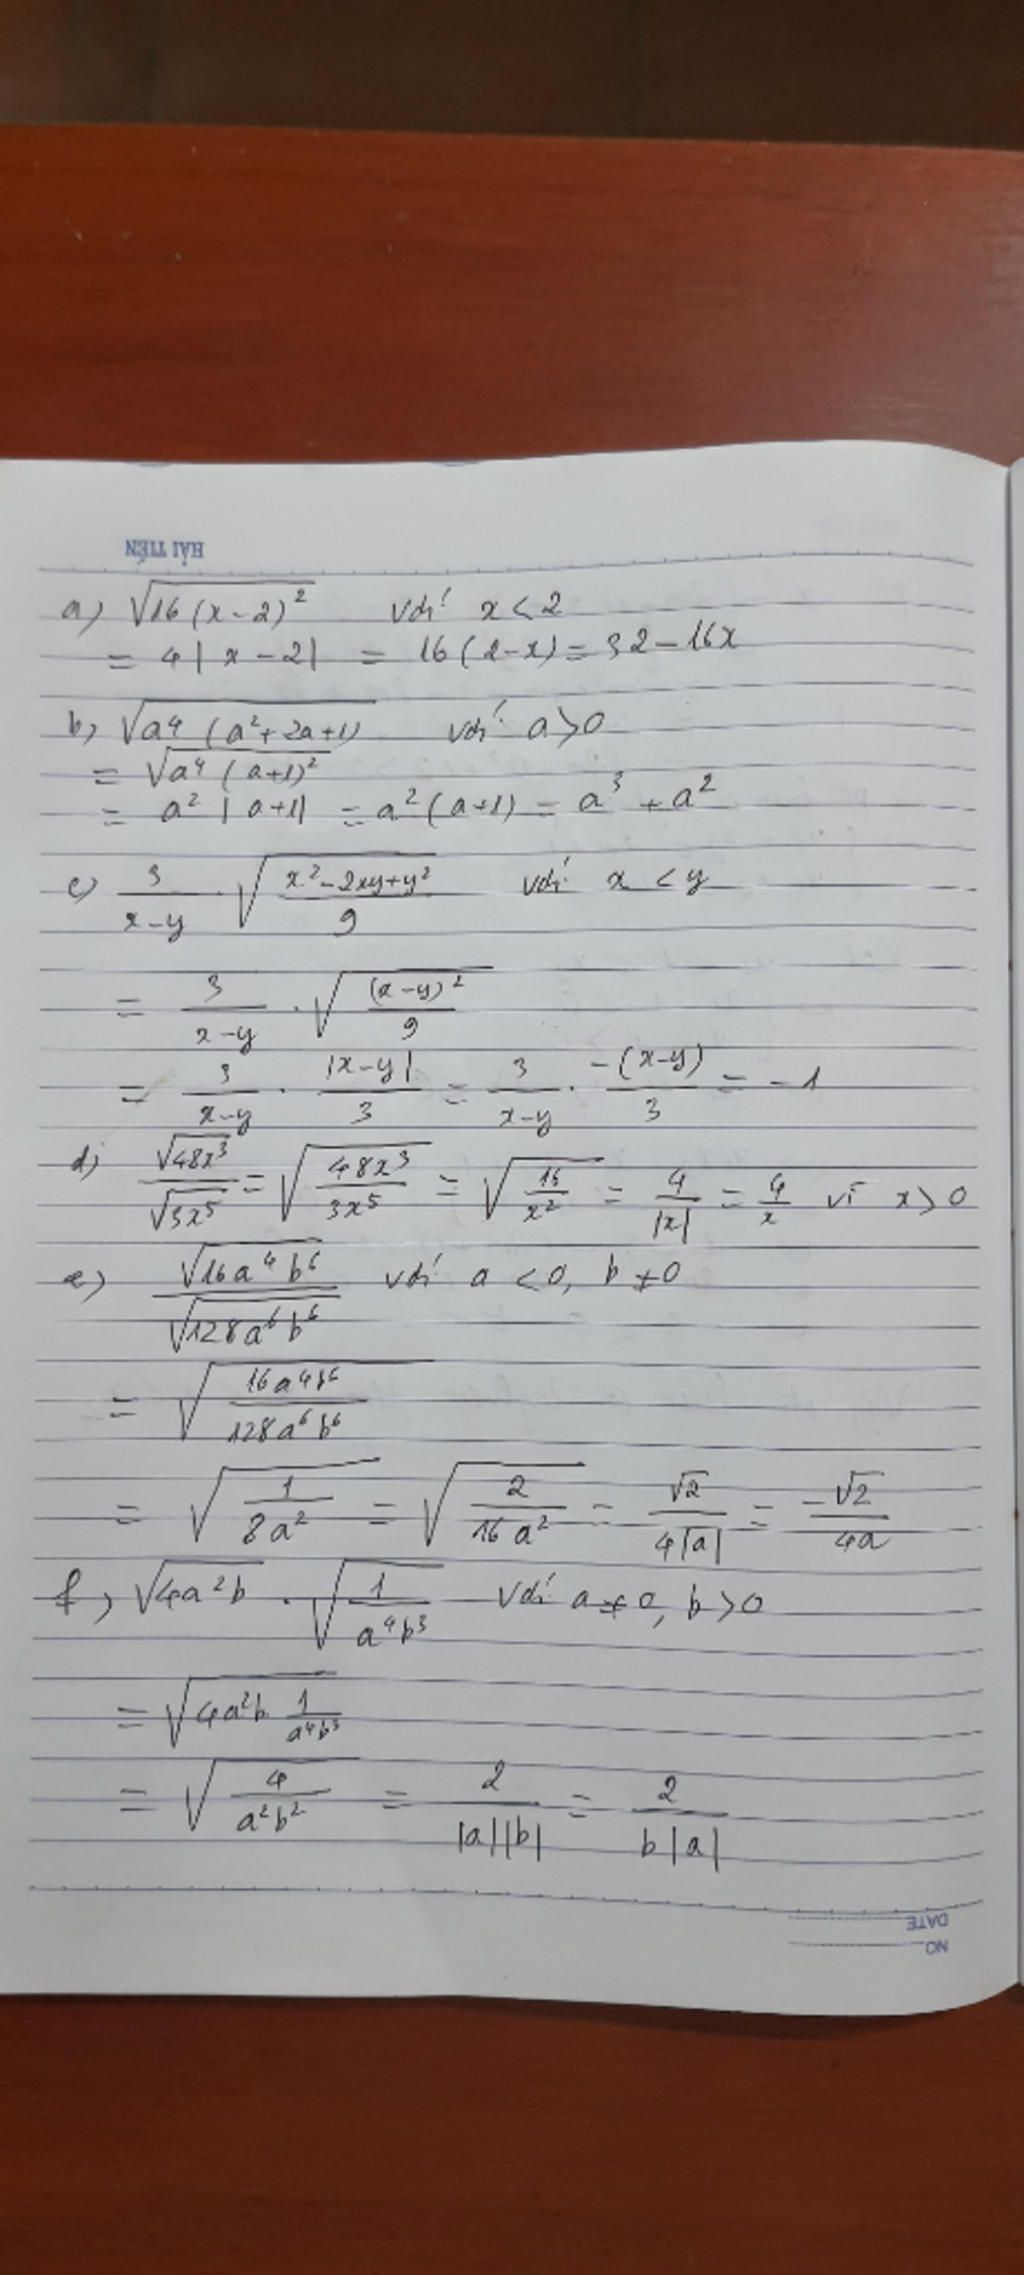 HẢI TIẾN
a) √16(x-2)² với x < 2
= 4|x-2| = 16(2-x) = 32-16x
b) √a⁴(a²+2a+1) với a>0
= √a⁴(a+1)²
= a²|a+1| = a²(a+1) = a³+a²
c) 3/(x-y) · √((x²-2xy+y²)/9) với x < y
= 3/(x-y) · √((x-y)²/9)
= 3/(x-y) · |x-y|/3 = 3/(x-y) · -(x-y)/3 = -1
d) √48x³/√3x⁵ = √(48x³/3x⁵) = √(16/x²) = 4/|x| = 4/x vì x>0
e) √16a⁴b⁶/√128a⁶b⁶ với a < 0, b ≠ 0
= √(16a⁴b⁶/128a⁶b⁶)
= √(1/8a²) = √(2/16a²) = √2/4|a| = -√2/4a
f) √4a²b · √(1/a⁴b³) với a ≠ 0, b > 0
= √(4a²b 1/a⁴b³)
= √(4/a²b²) = 2/|a||b| = 2/b|a|
DATE
NO